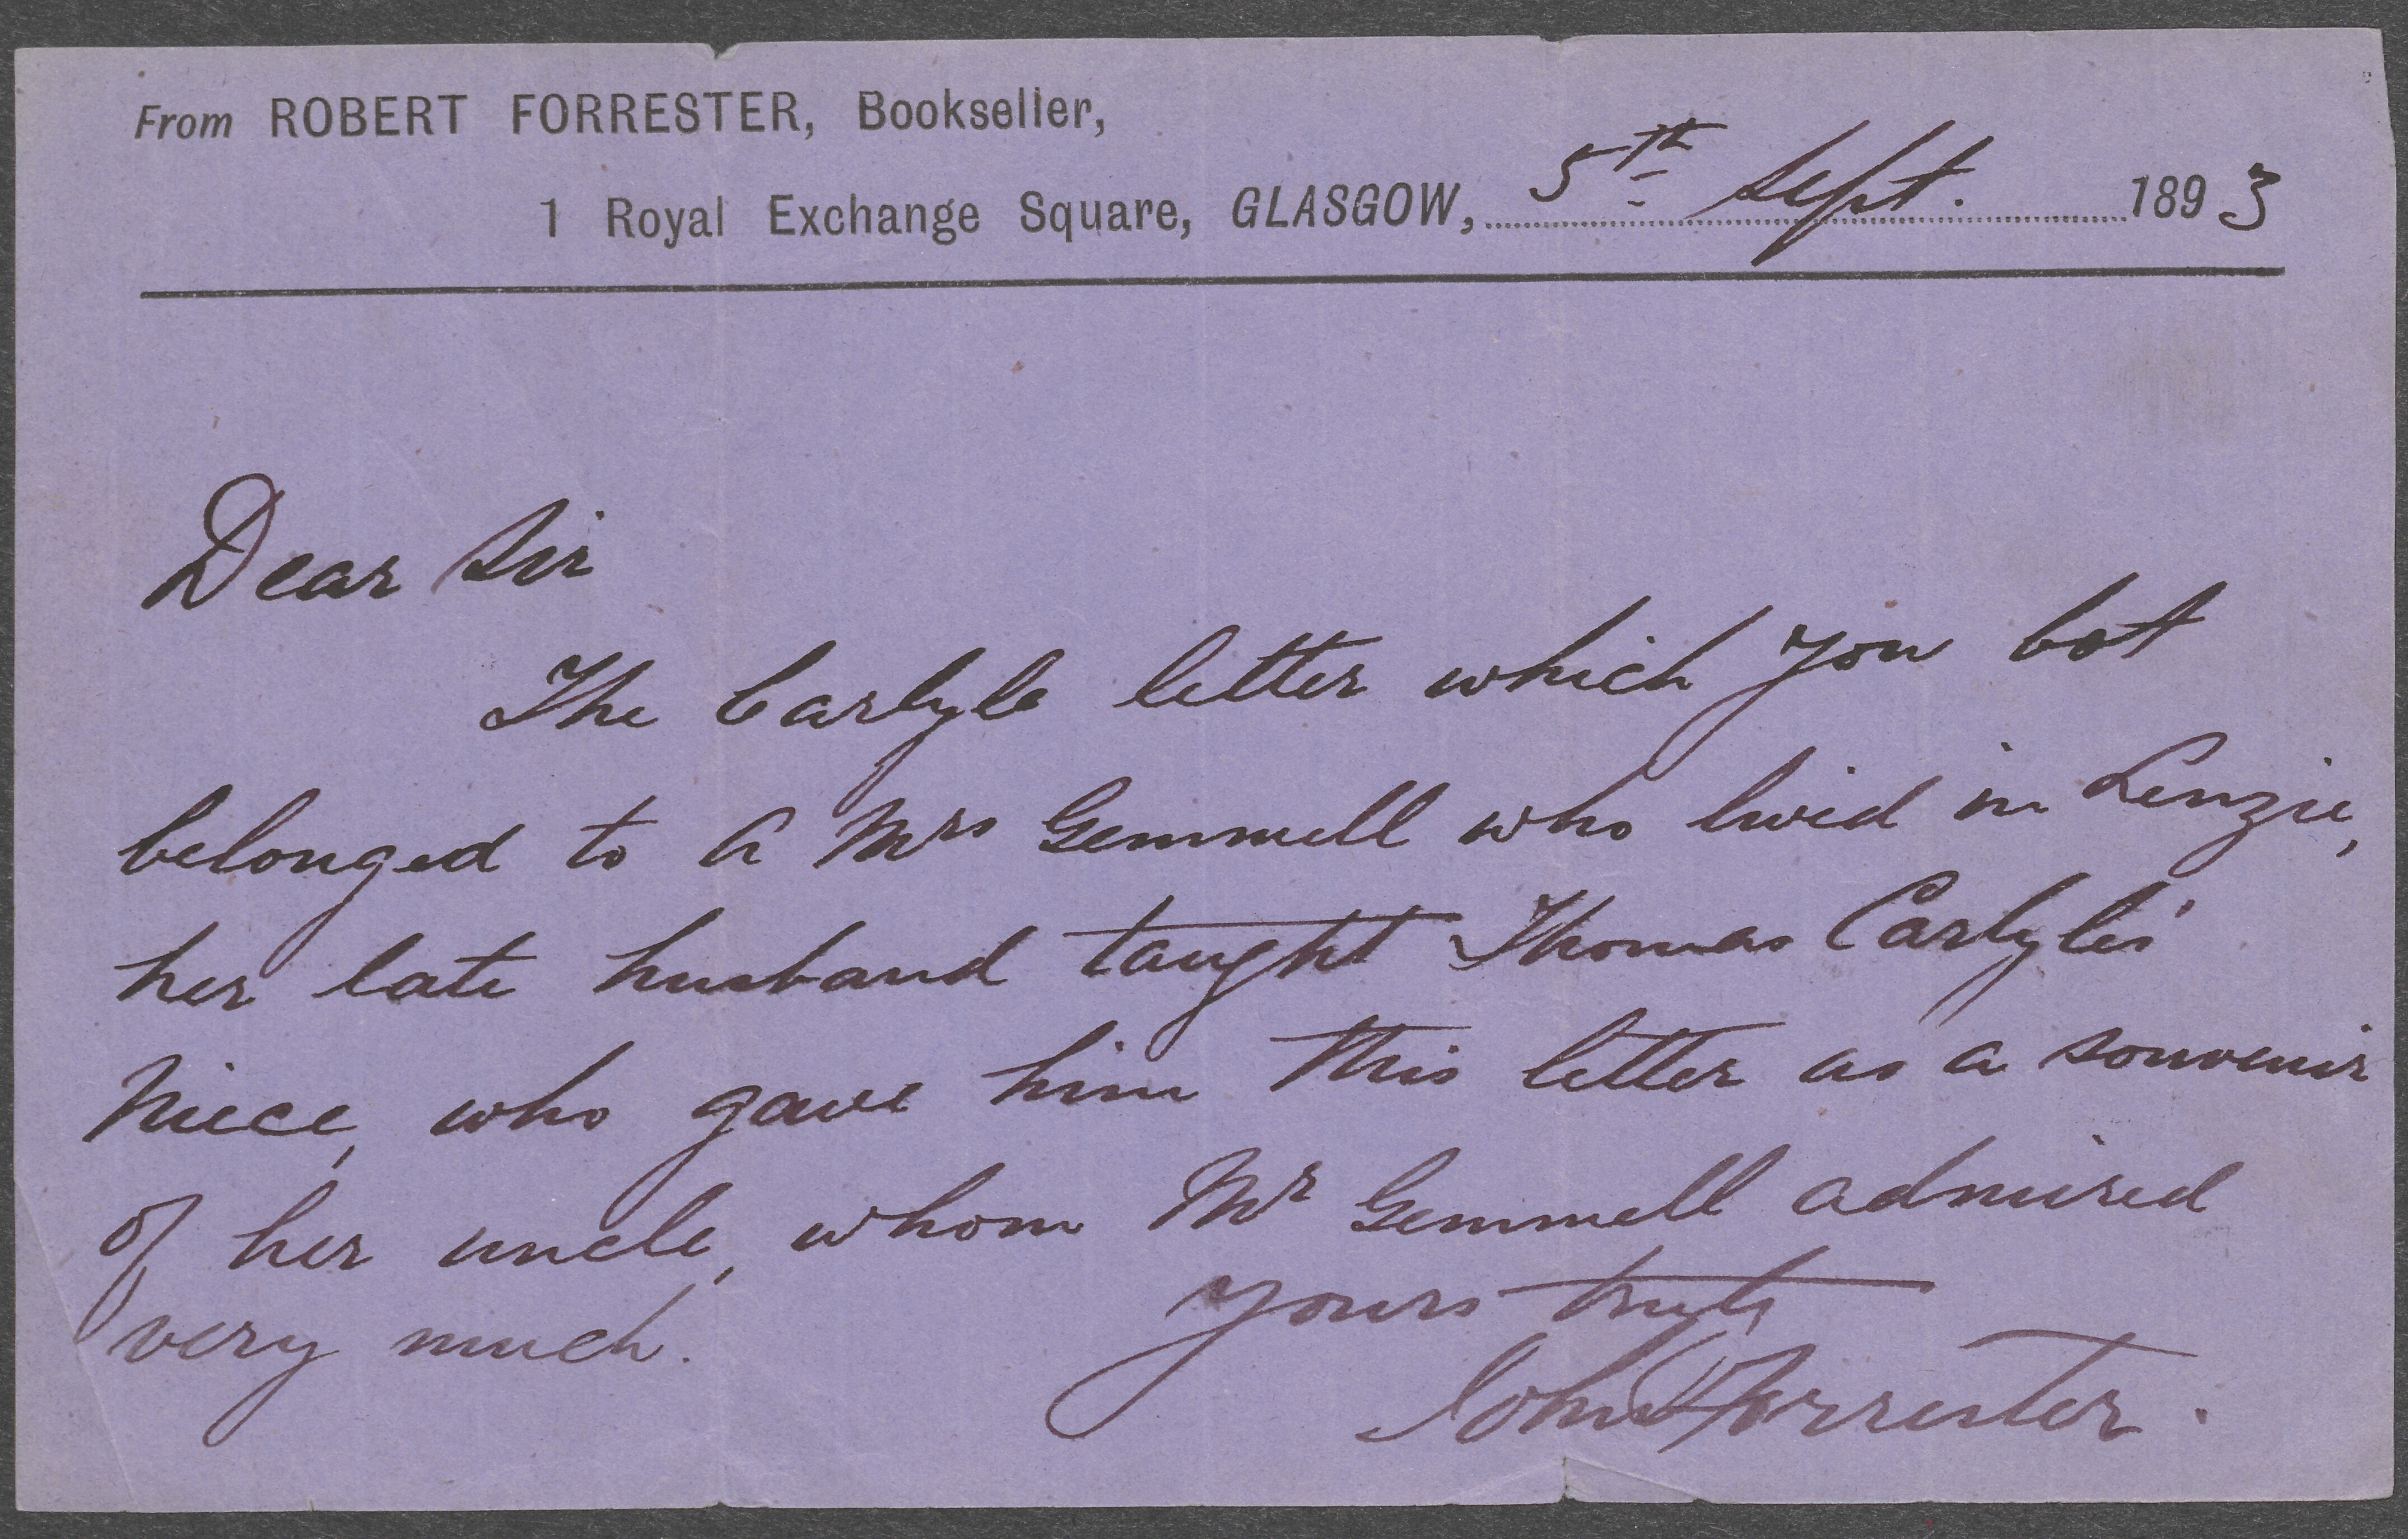 From ROBERT FORRESTER, Bookseller,
1 Royal Exchange Square, GLASGOW, 5th Sept. 1893
Dear Sir
The Carlyle letter which you bot
belonged to a Mrs Gemmell who lived in Lenzie,
her late husband taught Thomas Carlyle's
Niece, who gave him this letter as a souvenir
of her uncle, whom Mr Gemmell admired
very much.
Yours truly
John Forrester.